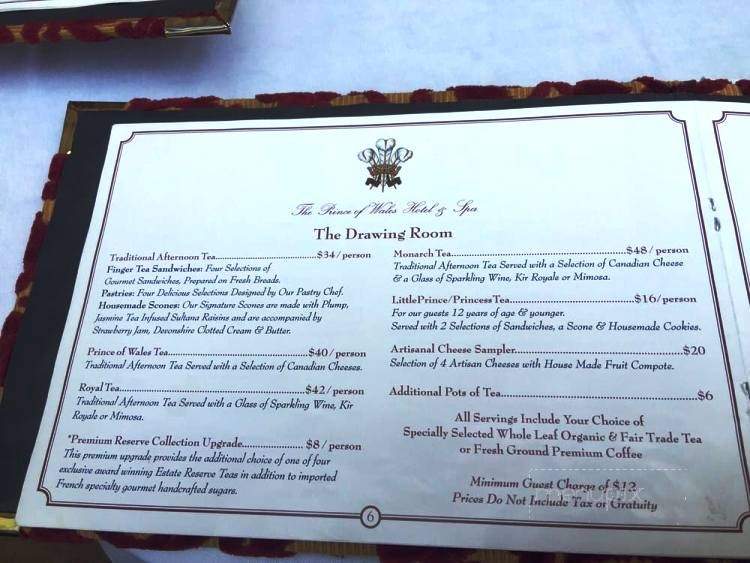 The Prince of Wales Hotel & Spa
The Drawing Room
Traditional Afternoon Tea...$34/person
Finger Tea Sandwiches: Four Selections of
Gourmet Sandwiches, Prepared on Fresh Breads.
Pastries: Four Delicious Selections Designed by Our Pastry Chef.
Housemade Scones: Our Signature Scones are made with Plump,
Jasmine Tea Infused Sultana Raisins and are accompanied by
Strawberry Jam, Devonshire Clotted Cream & Butter.
Prince of Wales Tea...$40/person
Traditional Afternoon Tea Served with a Selection of Canadian Cheeses.
Royal Tea...$42/person
Traditional Afternoon Tea Served with a Glass of Sparkling Wine, Kir
Royale or Mimosa.
*Premium Reserve Collection Upgrade...$8/person
This premium upgrade provides the additional choice of one of four
exclusive award winning Estate Reserve Teas in addition to imported
French specialty gourmet handcrafted sugars.
Monarch Tea...$48/person
Traditional Afternoon Tea Served with a Selection of Canadian Cheese
& a Glass of Sparkling Wine, Kir Royale or Mimosa.
Little Prince/Princess Tea...$16/person
For our guests 12 years of age & younger.
Served with 2 Selections of Sandwiches, a Scone & Housemade Cookies.
Artisanal Cheese Sampler...$20
Selection of 4 Artisan Cheeses with House Made Fruit Compote.
Additional Pots of Tea...$6
All Servings Include Your Choice of
Specially Selected Whole Leaf Organic & Fair Trade Tea
or Fresh Ground Premium Coffee
Minimum Guest Charge of $12
Prices Do Not Include Tax or Gratuity
6